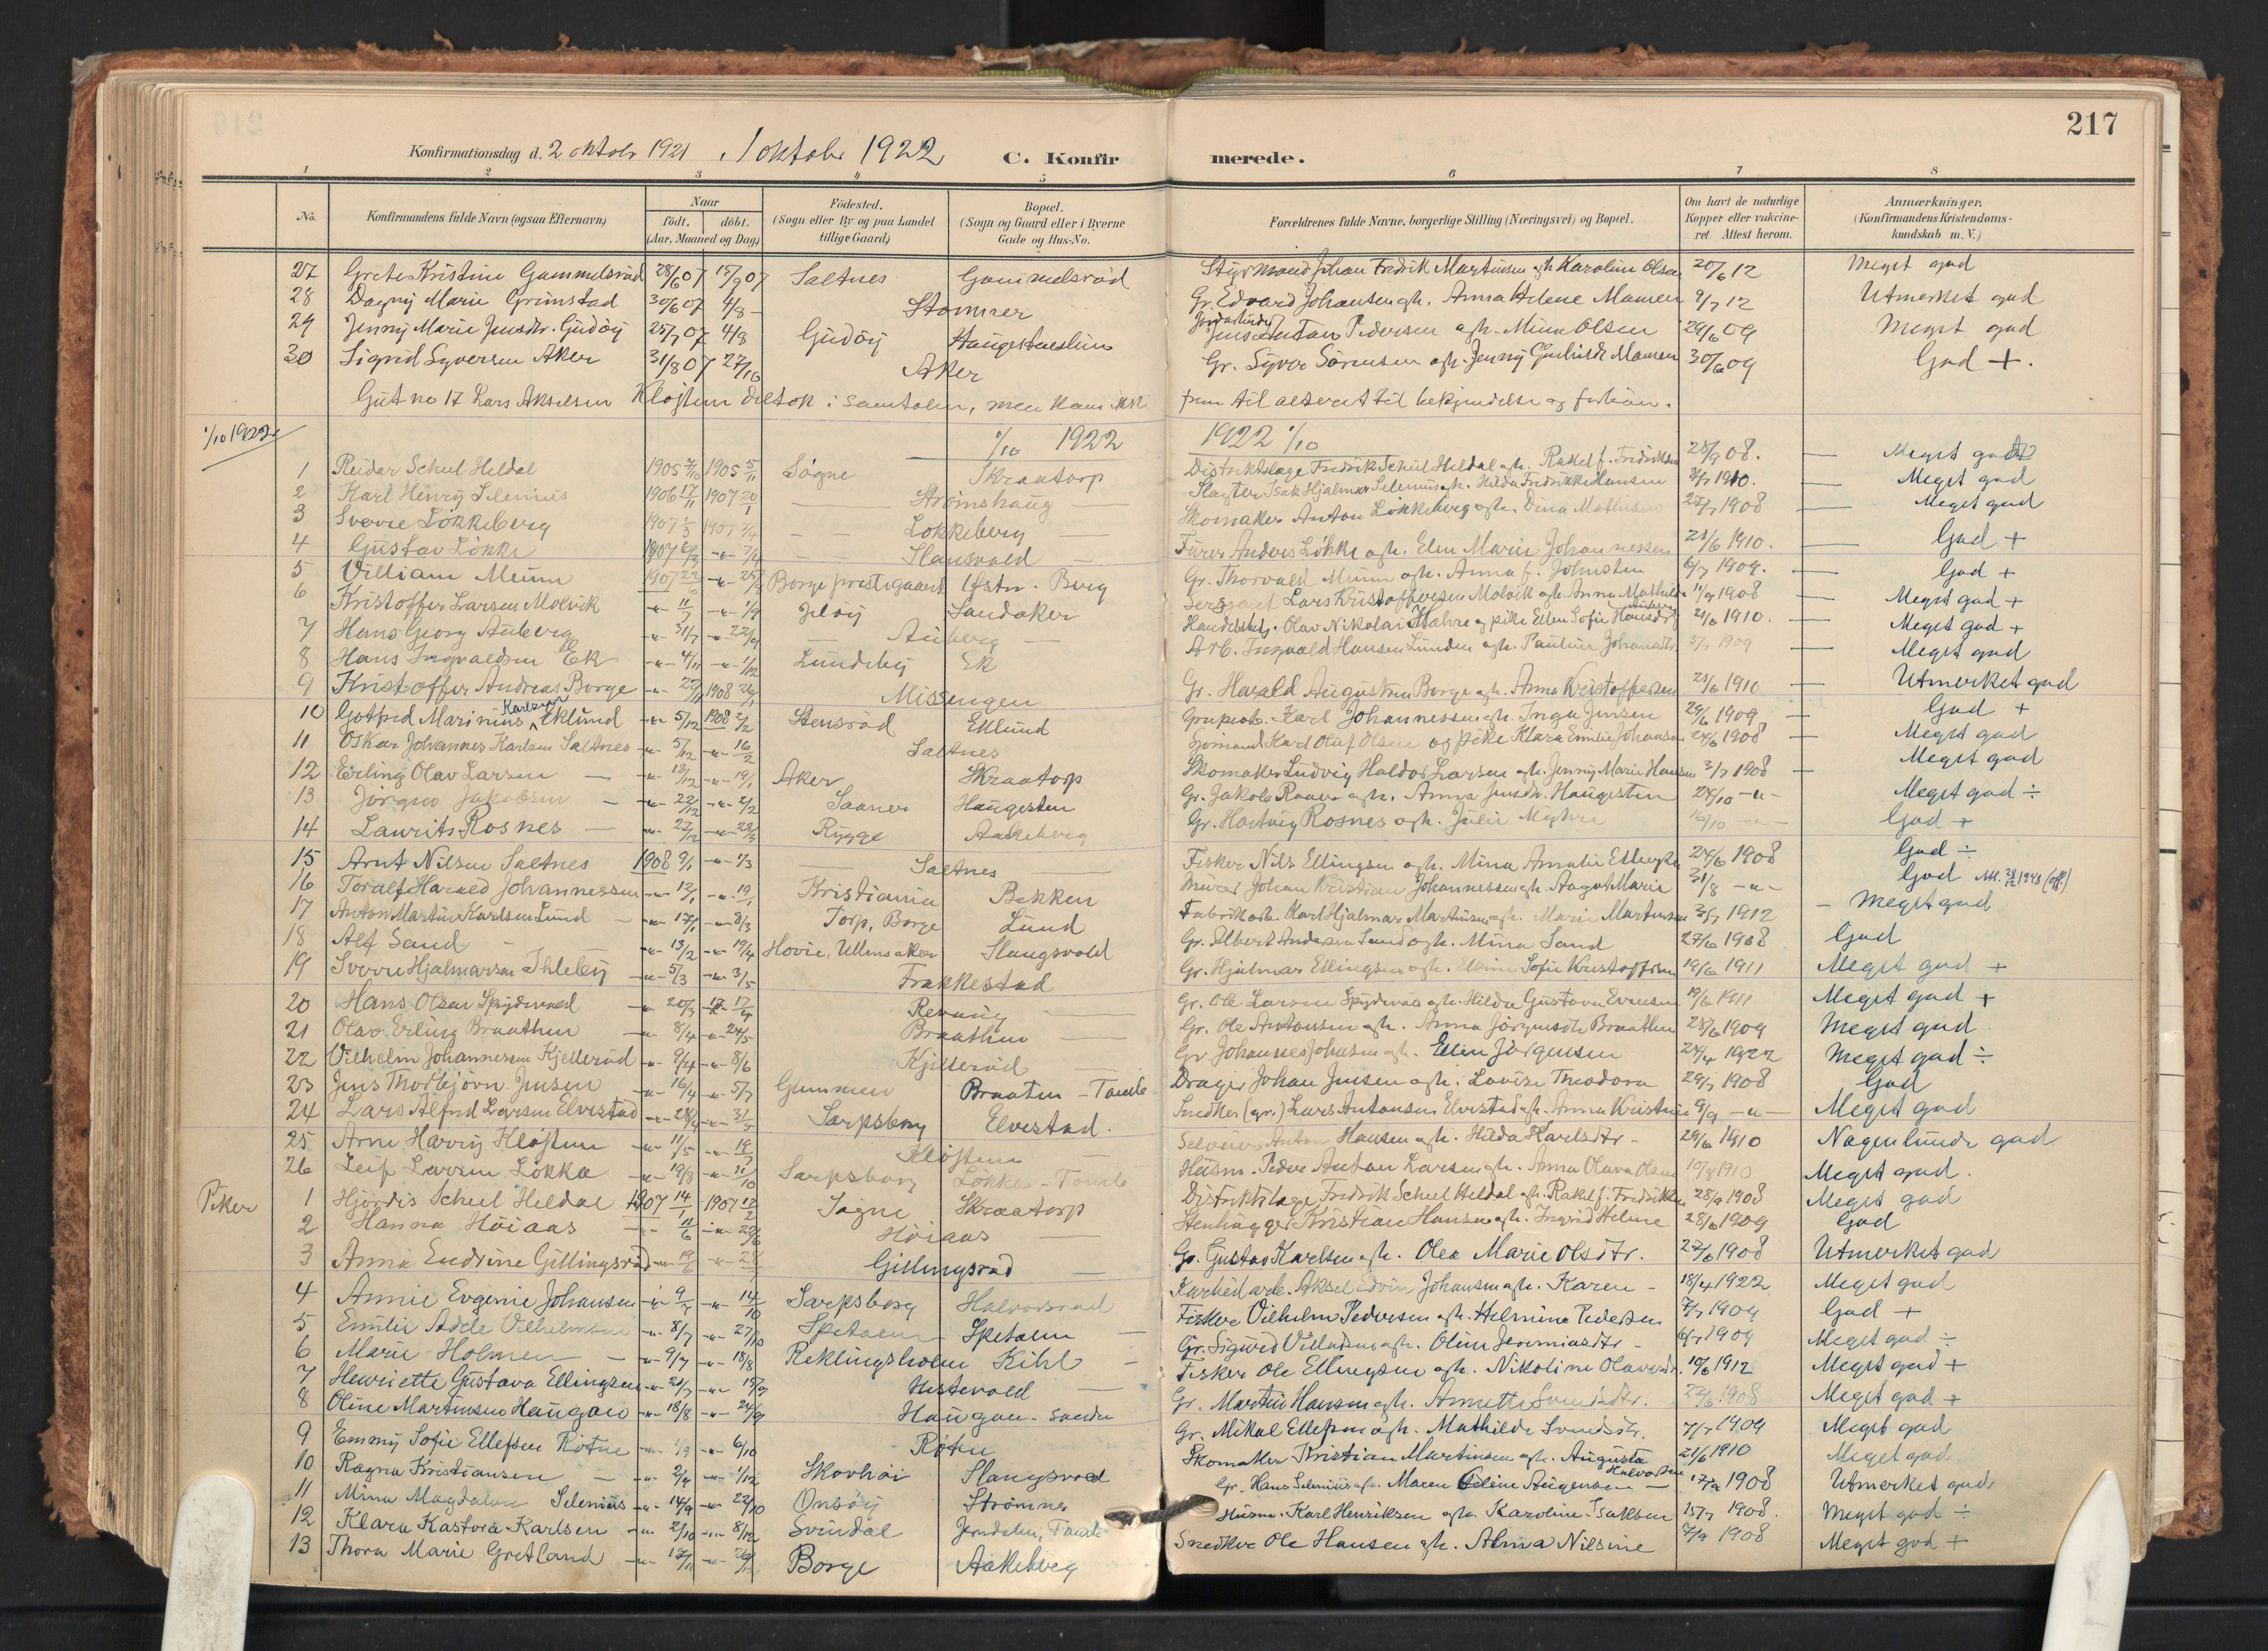 217
Konfirmationsdag d. 2 oktobr 1921 . 1 oktobr 1922 C. Konfirmerede.
1 2 3 4 5 6 7 8
No. Konfirmandens fulde Navn (ogsaa Efternavn) Naar födt. döbt. (Aar, Maaned og Dag) Födested. (Sogn eller By og paa Landet tillige Gaard) Bopæl. (Sogn og Gaard eller i Byerne Gade og Hus-No. Forældrenes fulde Navne, borgerlige Stilling (Næringsvei) og Bopæl. Om havt de naturlige Kopper eller vakcineret Attest herom. Anmærkninger. (Konfirmandens Kristendomskundskab m. V.)
27 Grete Kristine Gammelsröd 28/6 07 15/9 07 Saltnes Gammelsröd Styrmand Johan Fredrik Martinsen og h. Karoline Olsen 20/6 12 Meget god
28 Dagny Marie Grimstad 30/6 07 4/8 – Stomner Gr. Edvard Johansen og h. Anna Helene Mamen 9/7 12 Utmerket god
29 Jenny Marie Jensdtr. Gudöy 25/7 07 4/8 Gudöy Haugesten Jens Anton Pedersen og h. Mina Olsen 29/6 09 Meget god
30 Sigrid Syversen Aker 31/8 07 27/10 Aker Gr. Syver Sörensen og h. Jenny Mamen 30/6 09 God +.
Gut no 17 Lars Akselsen Klöften deltok i samtalen, men kom ikke frem til alteret til bekjendelse og forbön.
1/10 1922 1/10 1922 1922 1/10
1 Reidar Scheel Heldal 1905 1905 5/11 Sögne Skraatorp Distriktslæge Fredrik Scheel Heldal og h. Rakel f. Fredriksen 28/9 08. — Meget godt
2 Karl Henry Selenius 1906 17/11 1907 20/1 — Strömshaug — Slagter Isak Hjalmar Selenius og h. Hilda Fredrikke Hansen 1910. — Meget god
3 Sverre Lökkeberg 1907 1/3 1907 — — Lökkeberg — Skomaker Anton Lökkeberg og h. Dina Mathisen 1908 — Meget god
4 Gustav Lökke 1907 -"- — Slangsvold — Anders Lökke og h. Elen Marie Johannessen 21/6 1910. God +
5 Villiam Meum 1907 22/6 -"- 25/8 Borge prestegaard Östr. Borg Gr. Thorvald Meum og h. Anna f. Johnsten 6/7 1909. — God +
6 Kristoffer Larsen Molvik -"- 11/7 -"- 1/9 Jelöy Sandaker Sergeant Lars Kristoffersen Molvik og h. Anna Mathilde 11/9 1908 — Meget god +
7 Hans Georg Auberg -"- 31/7 -"- 22/9 — Auberg — Olav Nikolai og pike Ellen Sofie Hansdtr. 21/6 1910. — Meget god +
8 Hans Ingvaldsen Ek -"- 4/11 -"- 1/12 Lundeby Ek Arb. Ingvald Hansen Lunden og h. Pauline Johansdtr. 5/7 1909 — Meget god
9 Kristoffer Andreas Borge -"- 22/11 1908 26/1 Missengen Gr. Harald Augustsen Borge og h. Anna Kristoffersen 21/6 1910 — Utmerket god
10 Gotfred Marinius Karlsen Eklund -"- 5/12 1908 2/2 Stensröd Eklund Karl Johannessen og h. Inga Jensen 29/6 1909 — God +
11 Oskar Johannes Karlsen Saltnes -"- 5/12 -"- 16/2 Saltnes Sjömand Karl Oluf Olsen og pike Klara Emilie Johansen 24/6 1908 Meget god
12 Erling Olav Larsen — -"- 13/12 -"- 19/1 Aker Skraatorp Skomaker Ludvig Haldor Larsen og h. Jenny Marie Hansen 3/7 1908 — Meget god
13 Jörgen Jakobsen — -"- 22/12 -"- 2/2 Saaner Haugesten Gr. Jakob Raaer og h. Anna Jensdr. Haugesten 24/10 -"- Meget god ÷
14 Laurits Rosnes — -"- 27/12 -"- 22/3 Rygge Aakeberg Gr. Hartvig Rosnes og h. Julie Myhre 16/10 -"- God +
15 Arnt Nilsen Saltnes 1908 9/1 -"- 1/3 Saltnes Fisker Nils Ellingsen og h. Mina Amalie 24/6 1908 God ÷
16 Toralf Harald Johannessen -"- 12/1 -"- 19/1 Kristiania Bekken Murer Johan Kristian Johannessen og h. Aagot Marie 31/8 -"- God Att. 28/12 1948 (off.)
17 Anton Martin Karlsen Lund — -"- 17/1 -"- 8/3 Torp, Borge Lund Fabrikarb. Karl Hjalmar Martinsen og h. Marie Martinsen 1912 – Meget god
18 Alf Sand -"- 13/2 -"- 19/4 Hovin, Ullensaker Slangsvold Gr. Albert Andersen Sand og h. Mina Sand 27/6 1908 God
19 Sverre Hjalmarsen Ihleby -"- 5/3 -"- 3/5 Frakkestad Gr. Hjalmar Ellingsen og h. Sofie Kristoffersen 19/6 1911 Meget god +
20 Hans Olsen Spydevold -"- 20/3 -"- 17/4 Revaug Gr. Ole Larsen og h. Hilda Gustava Evensen 19/6 1911 Meget god +
21 Olav Erling Braathen -"- 8/4 -"- 24/5 Braathen — Gr. Ole Antonsen og h. Anna Jörgensdtr Braathen 28/6 1909 Meget god.
22 Vilhelm Johannessen Kjelleröd -"- 9/4 -"- 8/6 Kjelleröd Gr Johannes Johansen og h. Ellen Jörgensen 24/4 1922 Meget god ÷
23 Jens Thorbjörn Jensen -"- 16/4 -"- 5/7 Gummen Braaten – Tomb Drager Johan Jensen og h. Lovise Theodora 29/7 1908 God
24 Lars Alfred Larsen Elvestad -"- 28/4 -"- 31/5 Sarpsborg Elvestad. Snedker (gr.) Lars Antonsen Elvestad og h. Anna Kristine 9/9 -"- Meget god
25 Arne Harry Klöften -"- 11/5 -"- 19/7 Klöften Anton Hansen og h. Hilda Karlsdtr – 29/6 1910 Nogenlunde god
26 Leif Larsen Lökka -"- 19/8 -"- 11/10 Sarpsborg Lökka – Tomb Husm. Peder Anton Larsen og h. Anna Olava Olsen 10/8 1910 Meget god.
Piker 1 Hjördis Scheel Heldal 1907 14/1 1907 17/2 Sögne Skraatorp Distriktslæge Fredrik Scheel Heldal og h. Rakel f. Fredriksen 28/9 1908 Meget god
2 Hanna Höiaas -"- 11/6 -"- 29/6 Höiaas — Stenhugger Kristian Hansen og h. Ingrid Helene 28/6 1909 God
3 Anna Endrine Gillingsröd -"- 19/6 -"- Gillingsröd — Gr. Gustav Karlsen og h. Olea Marie Olsdtr. 27/6 1908 Utmerket god
4 Annie Evgenie Johansen -"- 9/7 -"- 14/10 Sarpsborg Halvorsröd Aksel Edvin Johansen og h. Karen – 18/4 1922 Meget god
5 Emilie Adele Vilhelmsen -"- 8/7 -"- 27/10 Spetalen Spetalen — Fisker Vilhelm Pedersen og h. Helmine Pedersen 7/7 1909 God +
6 Marie Holmen — -"- 9/7 -"- 18/8 Reklingsholm Kihl – Gr. Sigurd Villadsen og h. Oline Jeremiasdtr – 6/7 1909 Meget god ÷
7 Henriette Gustava Ellingsen -"- 21/7 -"- 15/9 Hestevold — Fisker Ole Ellingsen og h. Nikoline Olavesdr. 10/6 1912 Meget god +
8 Oline Martinsen Haugan -"- 18/8 -"- 24/9 Haugan – söndre Gr. Martin Hansen og h. Annette Svendsdtr. 22/6 1908 Meget god +
9 Emmy Sofie Ellefsen Rötne -"- 1/9 -"- 6/10 Rötne Gr. Mikal Ellefsen og h. Mathilde Svendsdtr. 7/7 1909 Meget god
10 Ragna Kristiansen — -"- 2/9 -"- 1/12 Skovhöi Slangsvold Skomaker Kristian Martinsen og h. Augusta Halvorsen 21/6 1910 Meget god
11 Mina Magdalene Selenius -"- 14/9 -"- 22/10 Onsöy Strömnes Gr. Hans Selenius og h. Maren Augensen — 1908 Utmerket god
12 Klara Kastora Karlsen -"- 2/10 -"- 8/12 Svindal Jerndalen, Tomb Husm. Karl Henriksen og h. Karoline Isaksen 15/7 1908. Meget god ÷
13 Thora Marie Gretland -"- 17/11 -"- 26/12 Borge Aakeberg Snedker Ole Hansen og h. Alma Nilsine 7/9 1908 Meget god +